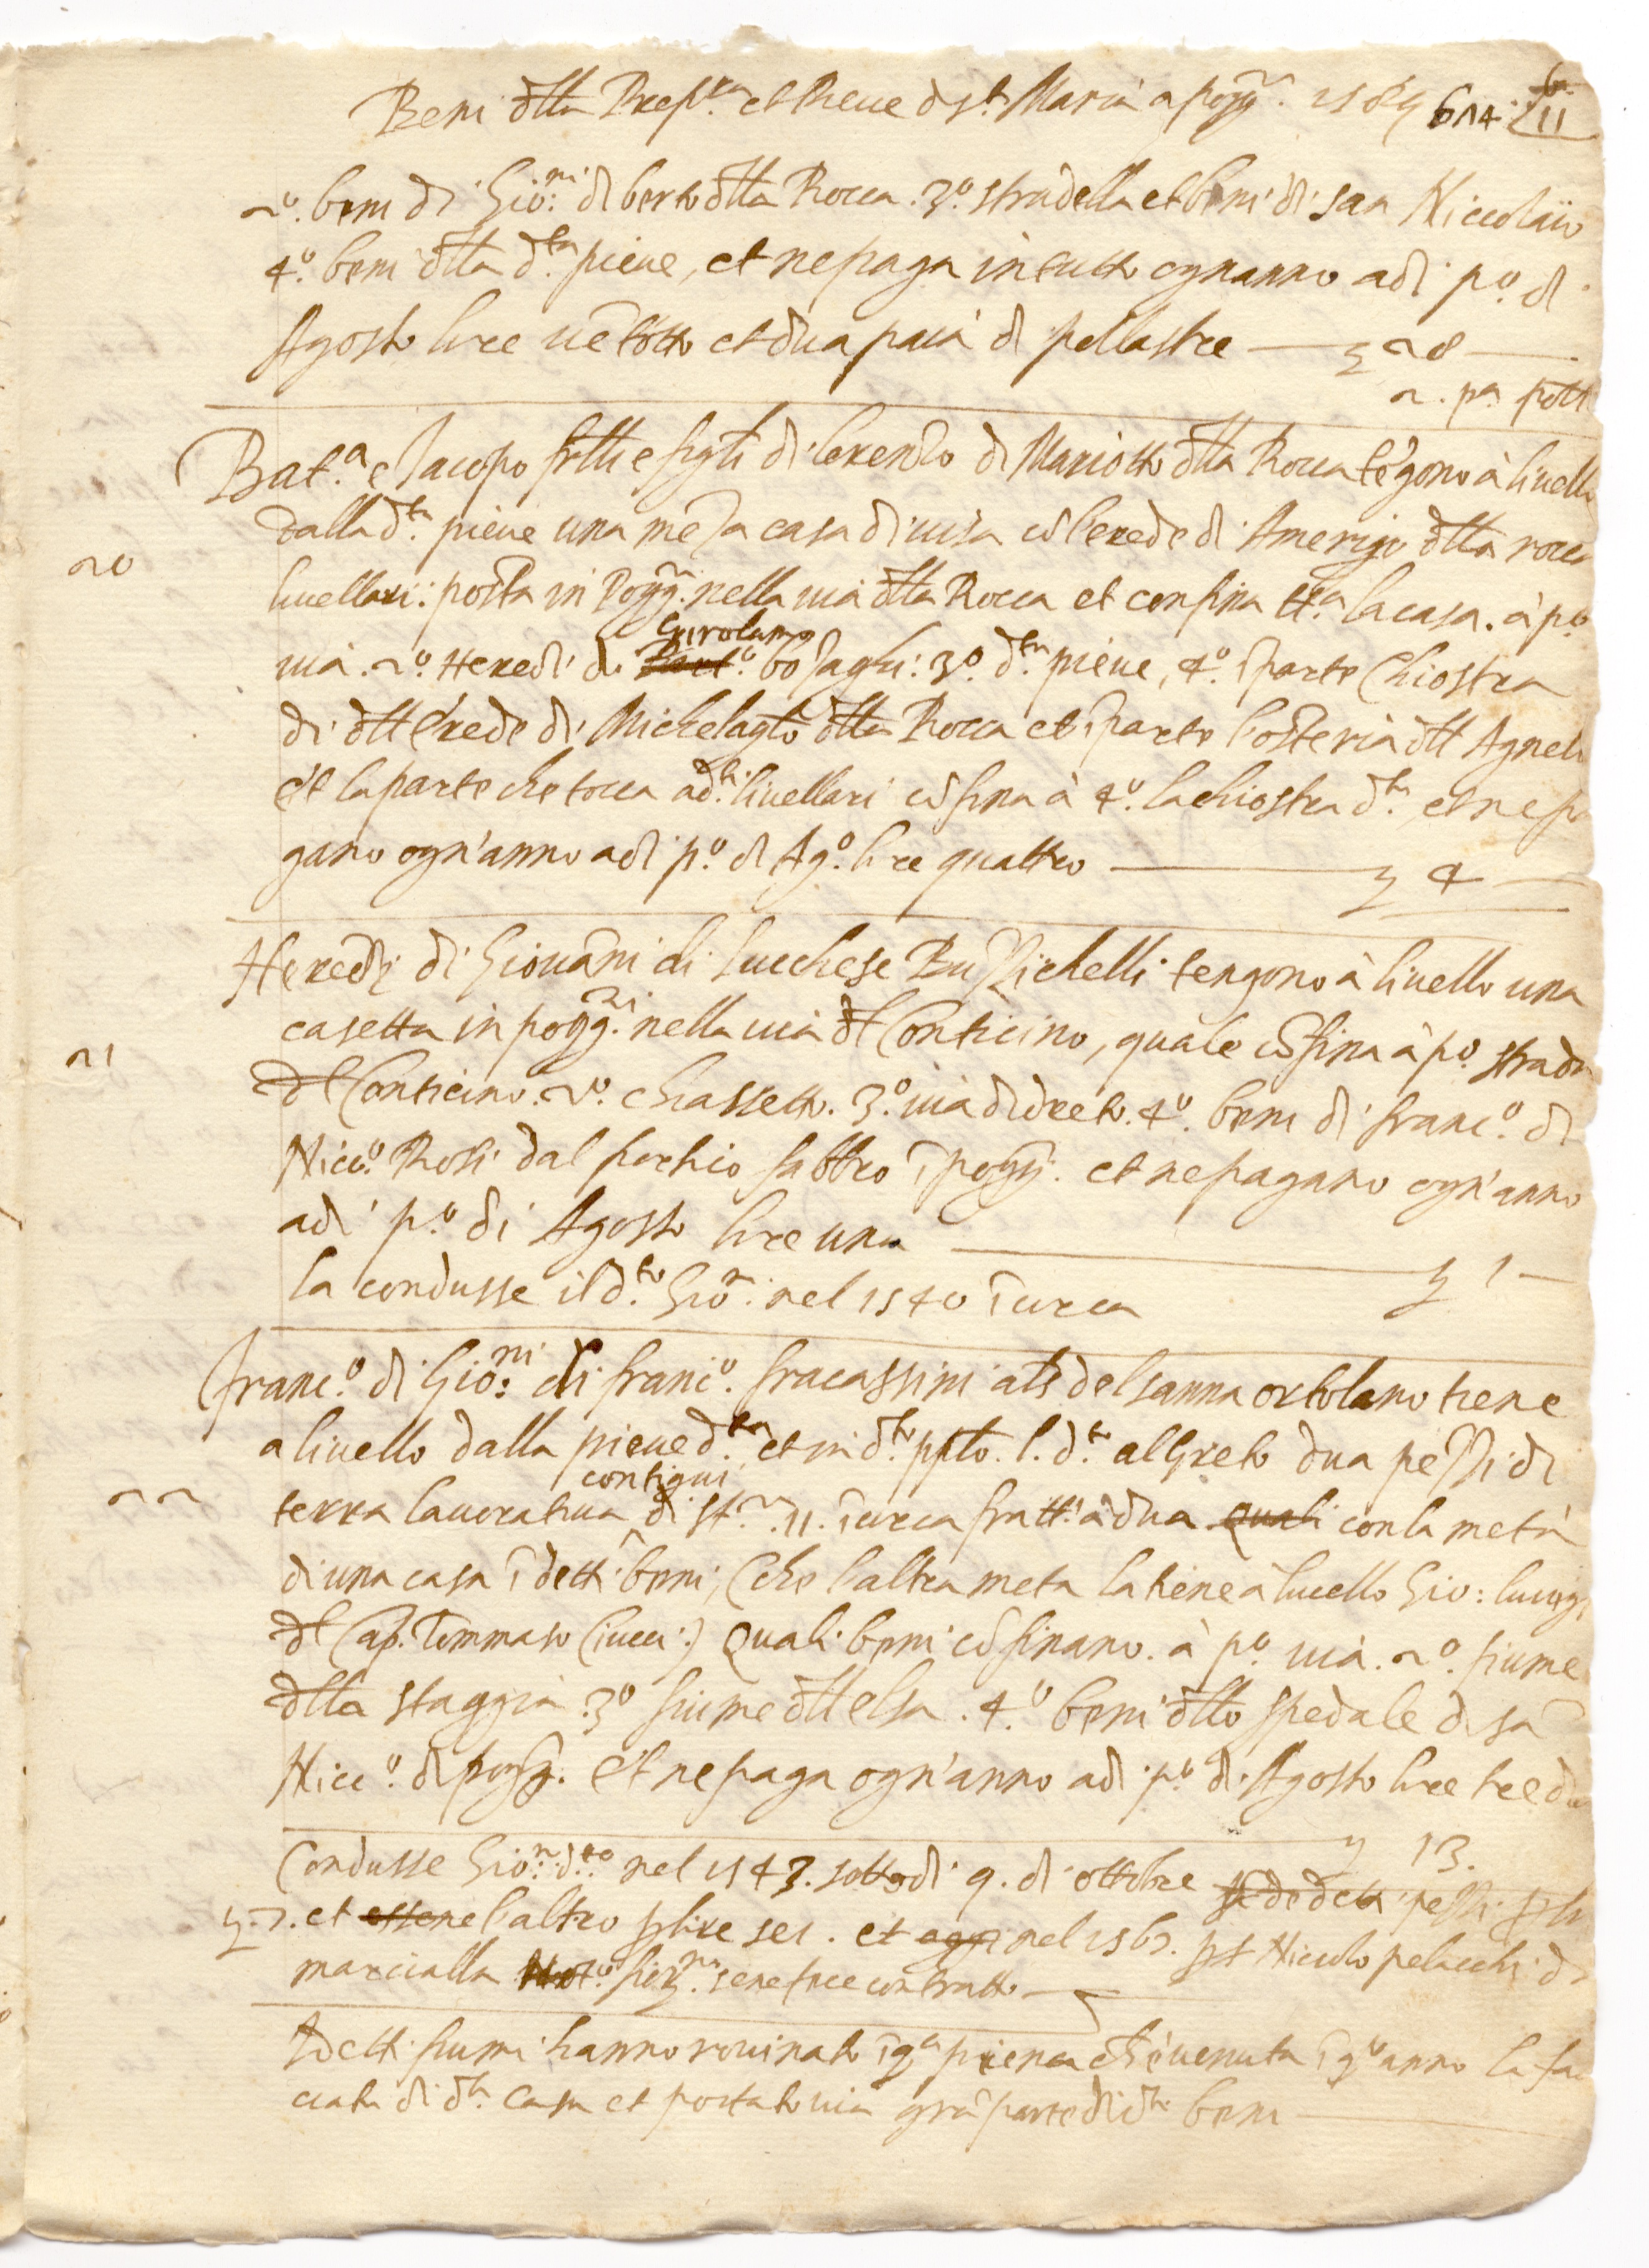 Beni dlla Prep.ra et Pieue di S.ta Maria a pogg. 1569 614 11
2º. beni di Gio:ni di berto dlla Rocca. 3º. stradella et beni di san Niccolaio
4º. beni dlla d.ta pieue, et ne paga in tutto ogn anno adi p.º di
Agosto lire uētotto et dua paia di pollastre — 28 —
2. pa poll
Bat.a e Iacopo frlli e figli di lorenzo di Mariotto dlla Rocca tēgono à liuello
dalla d.ta pieue una meza casa diuisa cō l'erede di Amerigo dlla rocca
20
liuellari: posta in Pogg. nella uia dlla Rocca et confina tt.a la casa. à p.º
Girolamo
uia. 2º. Heredi di Bart.º bozaghi: 3º. d.ta pieue, 4º. ī parte Chiostra
di dll Erede di Michelagl.o dlla Rocca et ī parte l'osteria dll Agnelo
et la parte che tocca ad.ti liuellari cōfina à 4º. la chiostra d.ta, et ne pa
gano ogn'anno adi p.º di Ag.º lire quattro — 4 —
Heredi di Giouāni di Lucchese Buzzichelli tengono à liuello una
casetta in pogg.zi nella uia dl Conticino, quale cōfina à p.º strada
21
dl Conticino. 2º. chassetto. 3º. uia di dreto. 4º. beni di franc.º di
Nicc.º Rosi dal porchio fabbro ī pogg. et ne pagano ogn'anno
adi p.º di Agosto lire una — 1 —
la condusse il d.to Gio.n nel 1540 ī circa
franc.º di Gio:ni di franc.º fracassini als del sanna ortolano tiene
a liuello dalla pieue d.ta et in d.to pplo. l. d.to al Greto dua pezzi di
contigui
22
terra lauoratiua di st.ra 11. ī circa fra tt.i à dua quali con la metà
di una casa ī detti beni, (che l'altra meta la tiene à liuello Gio: luigi
dl Cap. Tommaso Ciucci:) Quali beni cōfinano. à p.º uia. 2º. fiume
dlla staggia 3º fiume dll elsa. 4º. beni dllo spedale di sā
Nicc.º di pogg. et ne paga ogn'anno adi p.º di Agosto lire tredi
13.
Condusse Gio:n d.to nel 1543. sotto di 9. di ottobre dedetti pezzi p li
7. et essene l'altro p lire sei. et oggi nel 1567. p s.r Niccolo pelacchi di
marcialla Not.º fior.no se ne fece contratto —
I detti fiumi hanno rouinato ī q.ta piena ch'è uenuta ī q.to anno la fac
ciata di d.ta casa et portato uia grā parte di d.ti beni —